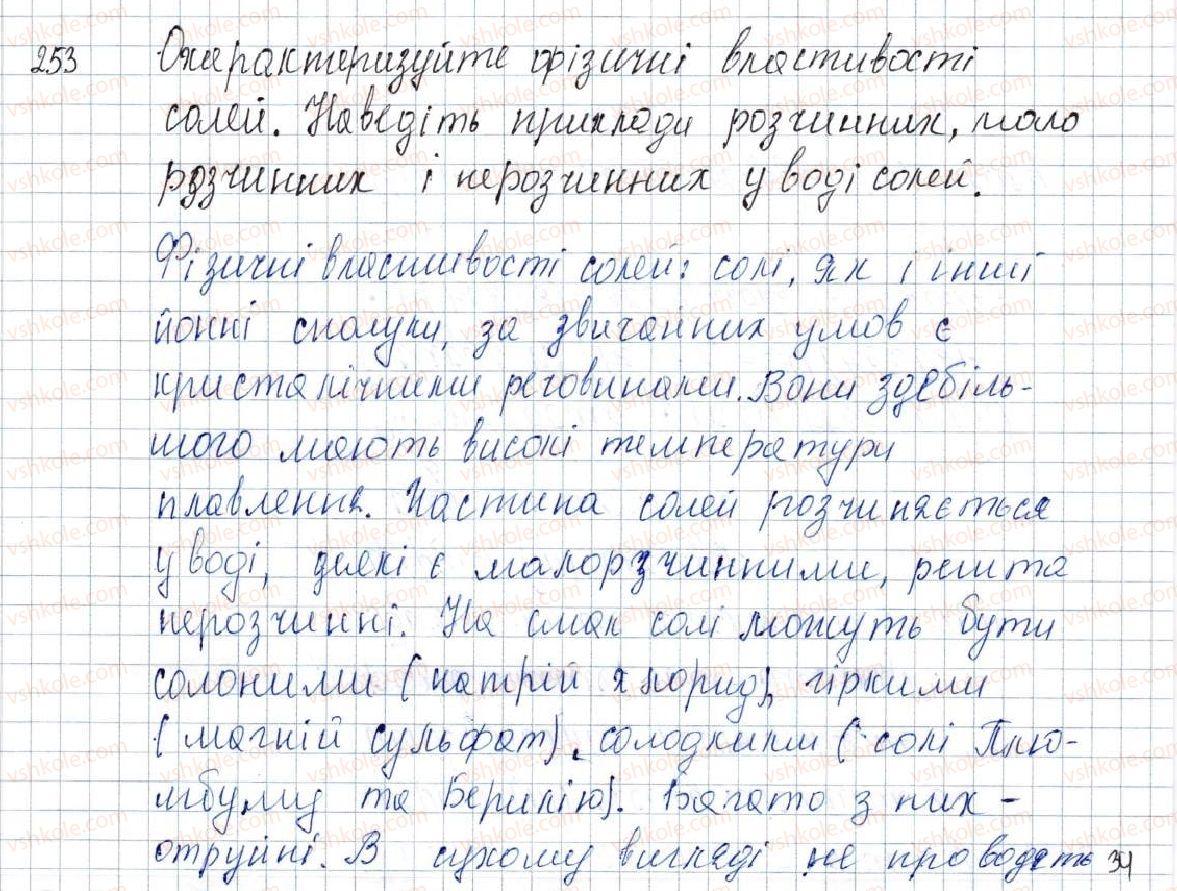 253 Охарактеризуйте фізичні властивості
солей. Наведіть приклади розчинних, мало
розчинних і нерозчинних у воді солей.
Фізичні властивості солей: солі, як і інші
йонні сполуки, за звичайних умов є
кристалічними речовинами. Вони здебіль-
шого мають високі температури
плавлення. Частина солей розчиняється
у воді, деякі є малорзчинними, решта
нерозчинні. На смак солі можуть бути
солоними (натрій хлорид), гіркими
(магній сульфат), солодкими (солі Плю-
мбуму та Берилію). Багато з них -
отруйні. В сухому вигляді не проводять
34